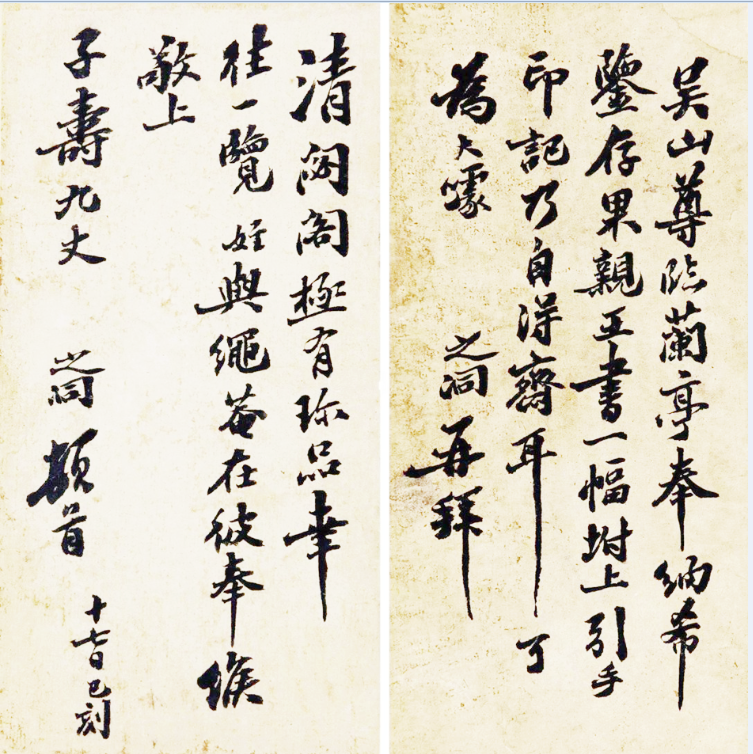 吴山尊臨蘭亭奉納希
鑒存果親王書一幅坿上引手
印記乃自得齋耳 可
為大噱 之洞再拜
清閟閣極有珎品幸
往一覽 姪與繩菴在彼奉候
敬上
子壽九丈 之洞頓首 十七日巳刻